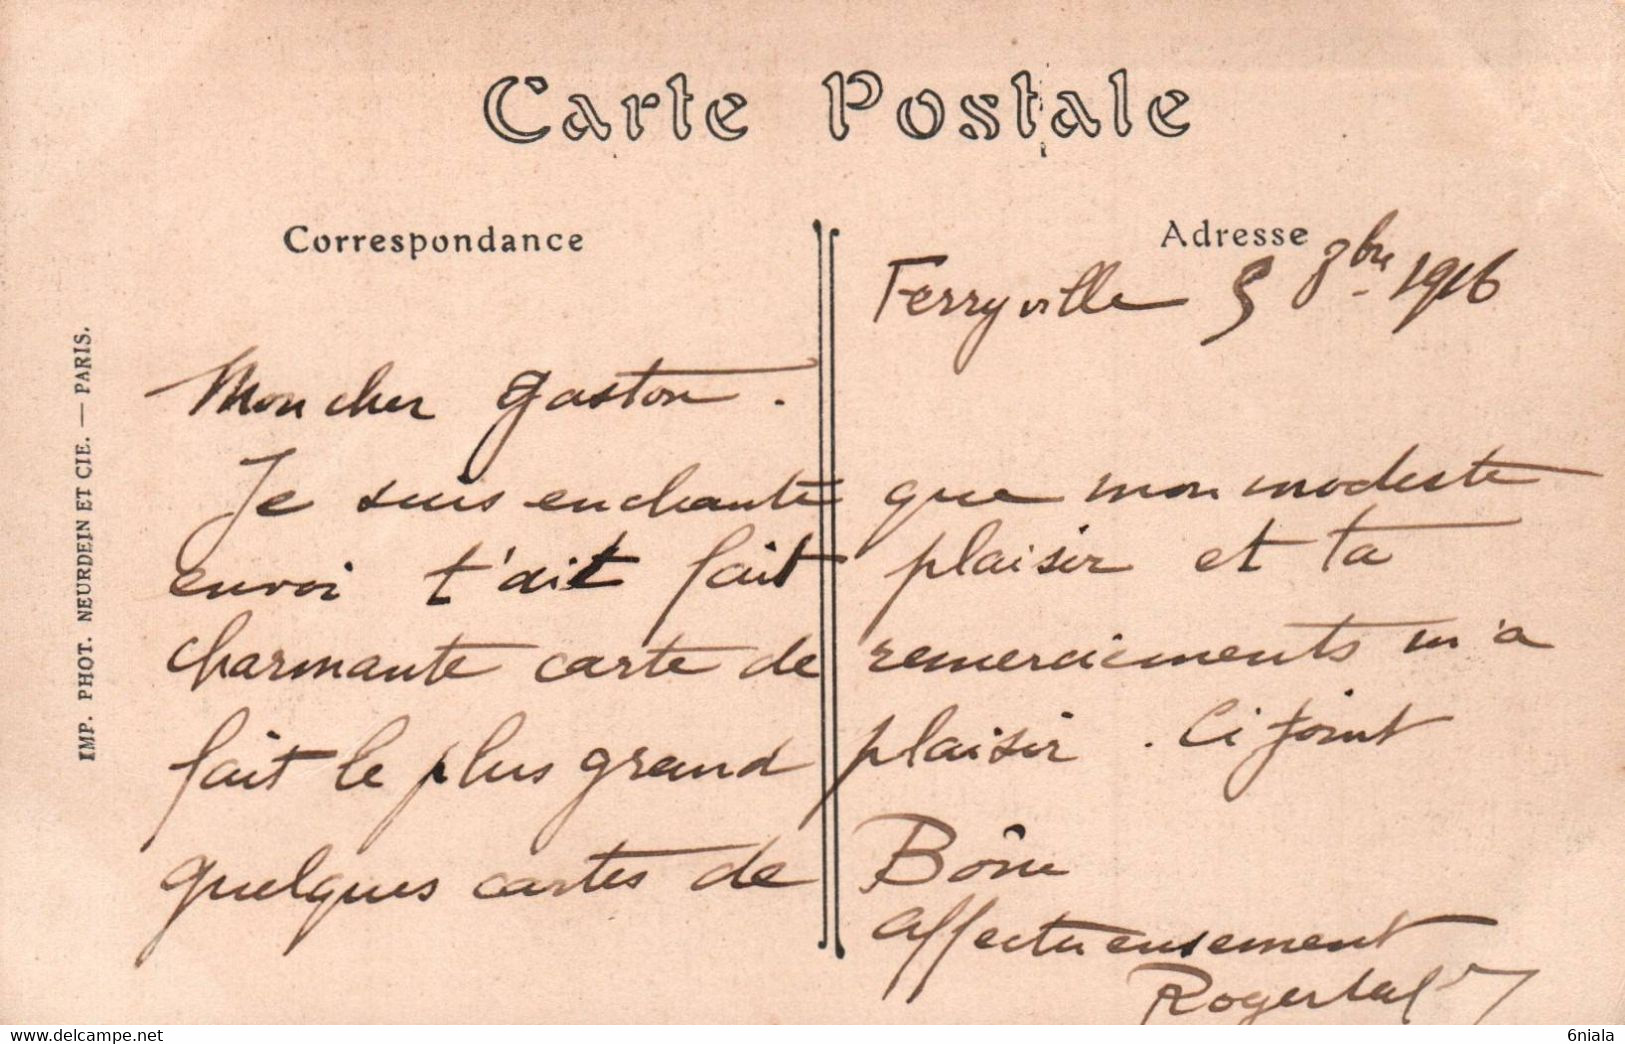 Carte Postale
Correspondance
Adresse
Ferryville 5 bre 1916
Mon cher Gaston.
Je suis enchanté que mon modeste
envoi t'ait fait plaisir et ta
charmante carte de remerciements m'a
fait le plus grand plaisir. Ci joint
quelques cartes de Bône
affectueusement
IMP. PHOT. NEURDEIN ET CIE. — PARIS.
6niala